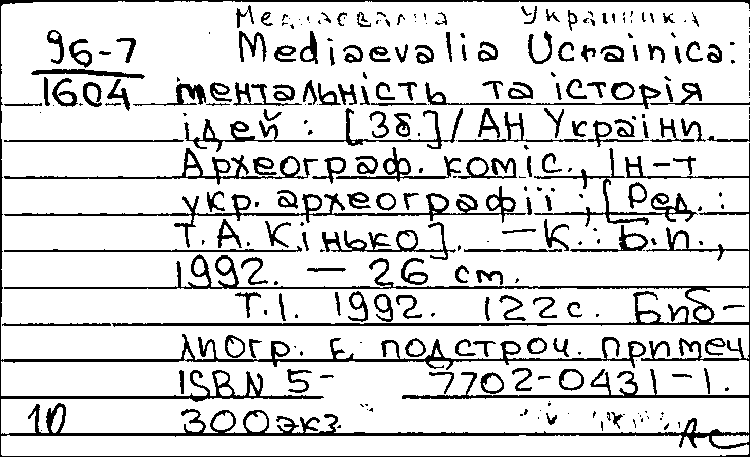 Медиаевалиа Украиника
96-7
1604
Mediaevalia Ucrainica:
ментальність та історія
ідей : [Зб.] / АН України.
Археограф. коміс., Ін-т
укр. археографії ; [Ред. :
Т. А. Кінько]. — К. : Б.и.,
1992. — 26 см.
Т.1. 1992. 122 с. Биб-
лиогр. в подстроч. примеч
ISBN 5- 7702-0431-1.
10 300 экз